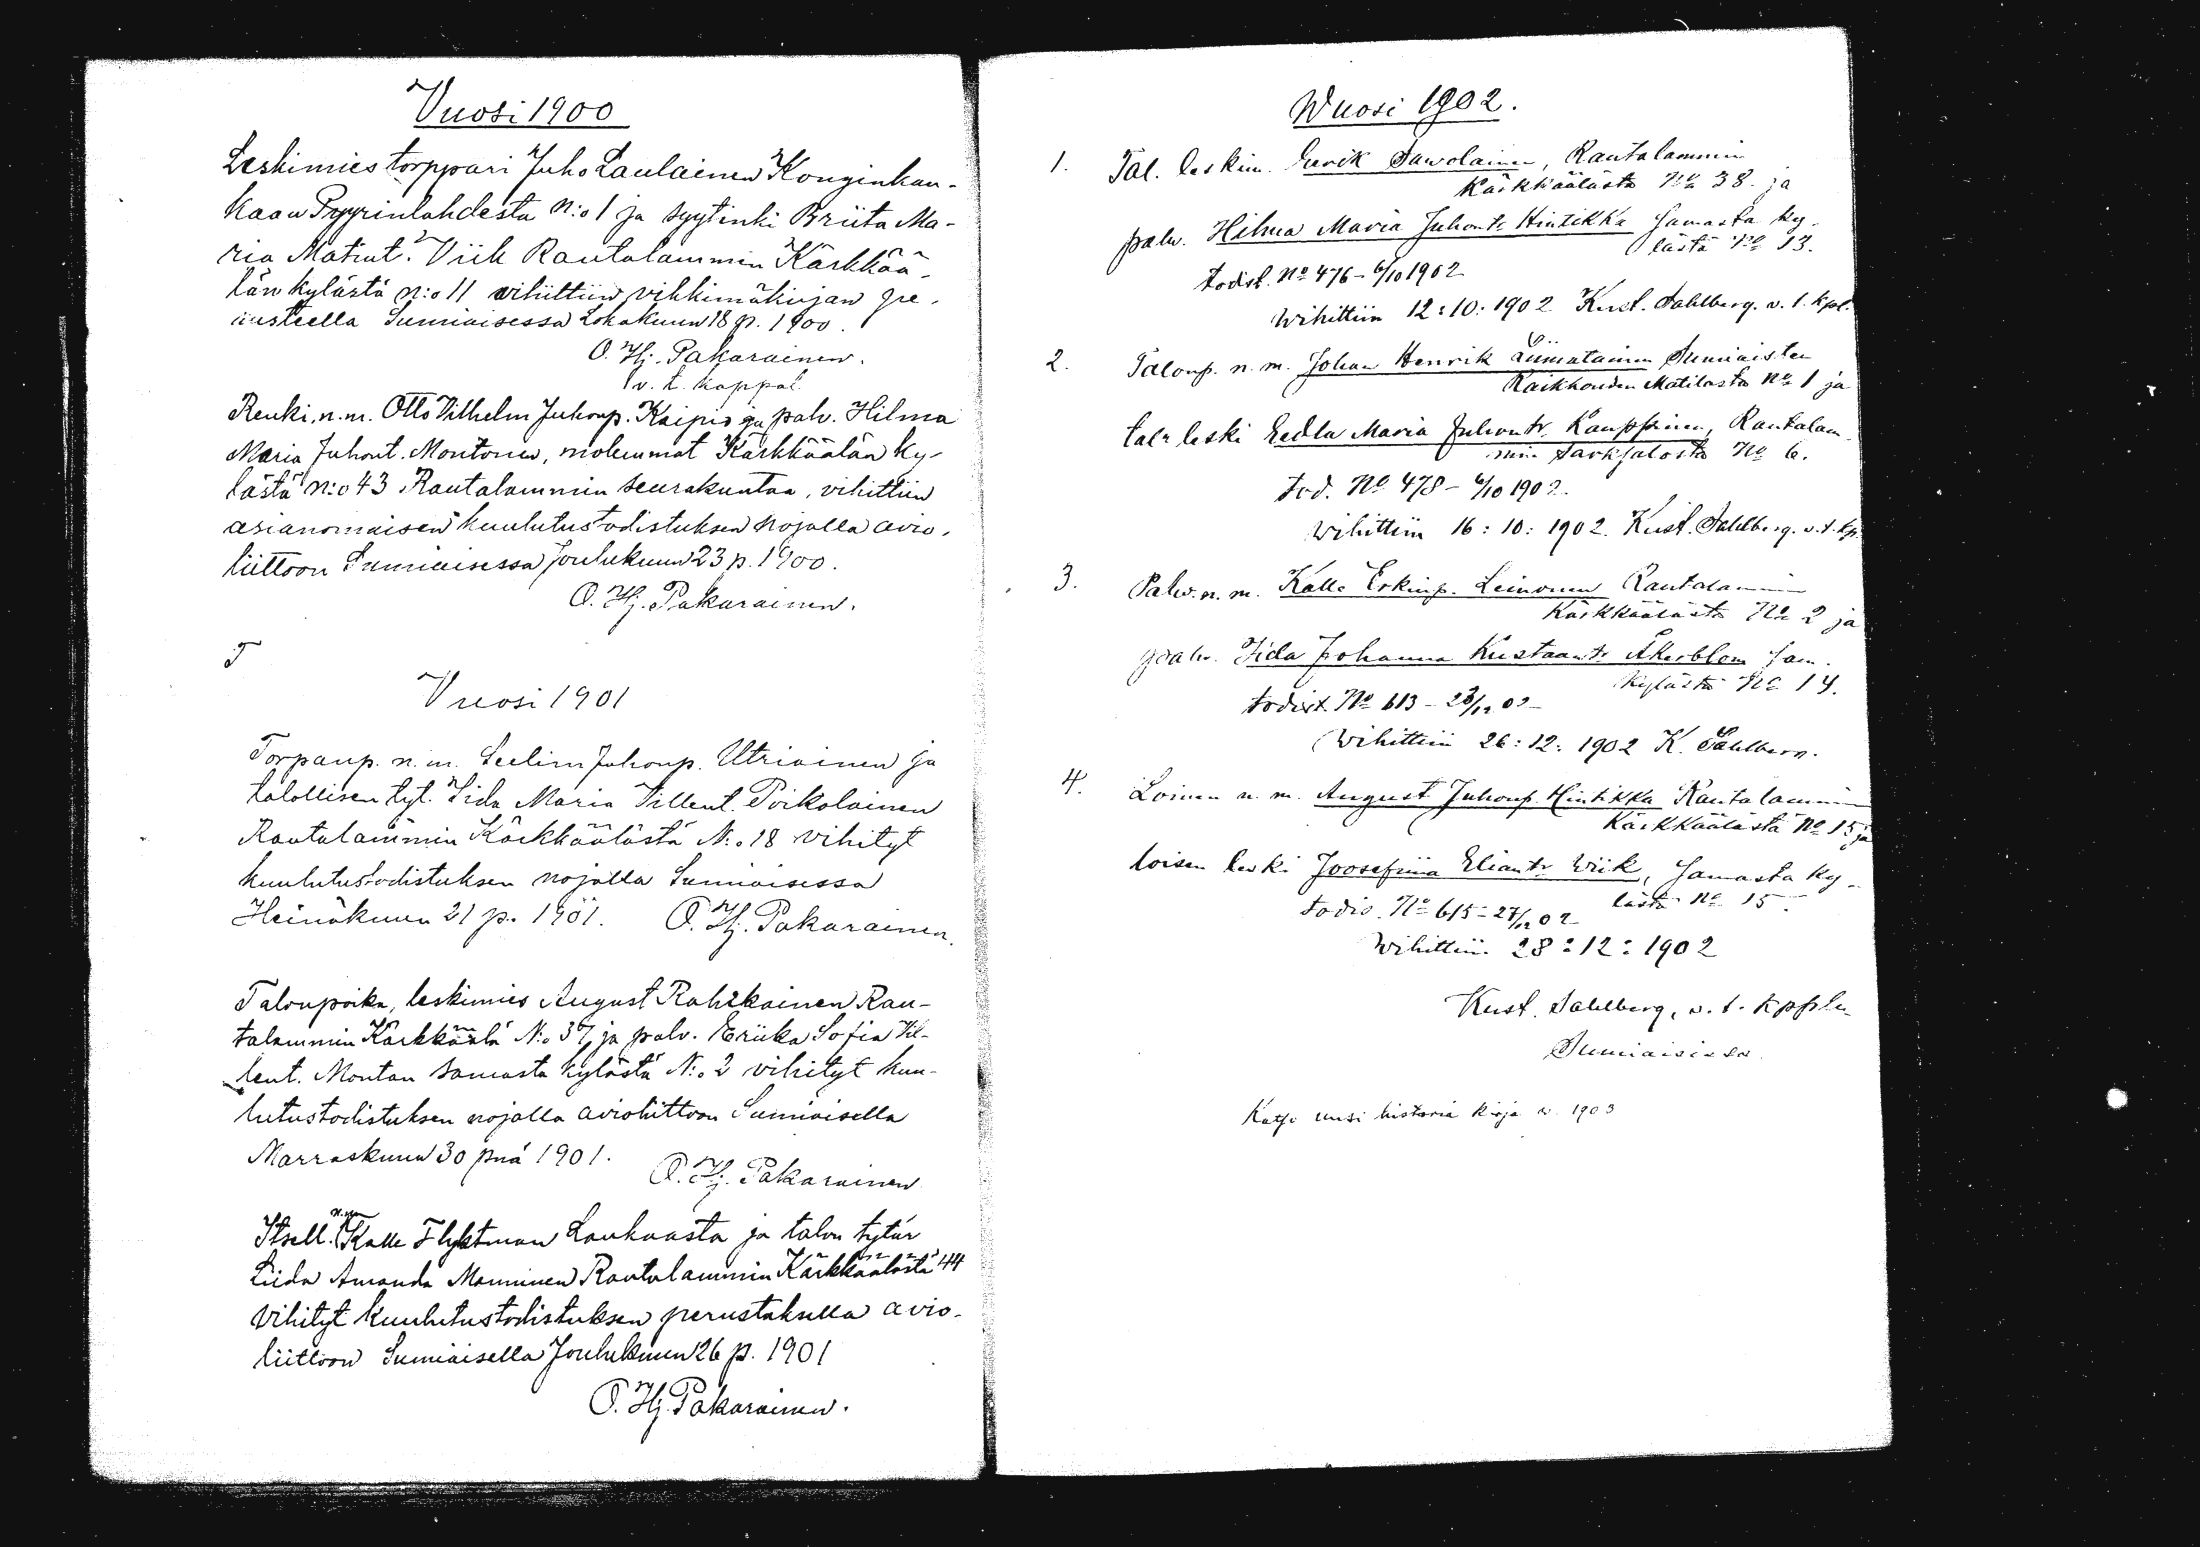 Vuosi 1900
Leskimies torppari Juho Laulainen Konginkan-
kaan Pyyrinlahdesta N:o 1 ja syytinki Briita Ma-
ria Matint. Viik Rautalammin Kärkkää-
län kylästä n:o 11 vihittiin vihkimäkirjan pe-
rusteella Sumiaisessa Lokakuun 18 p. 1900.
O. Hj. Pakarainen.
v. t. kappal.
Renki, n.m. Otto Vilhelm Juhonp. Kaipio ja palv. Hilma
Maria Juhont. Montonen, molemmat Kärkkäälän ky-
lästä n:o 43 Rautalammin seurakuntaa, vihittiin
asianomaisen kuulutustodistuksen nojalla avio-
liittoon Sumiaisessa Joulukuun 23 p. 1900.
O. Hj. Pakarainen.
T
Vuosi 1901
Torpanp. n.m. Seelim Juhonp. Utriainen ja
talollisen tyt. Iida Maria Villent. Poikolainen
Rautalammin Kärkkäälästä N:o 18 vihityt
kuulutustodistuksen nojalla Sumiaisessa
Heinäkuun 21 p. 1901. O. Hj. Pakarainen.
Talonpoika, leskimies August Rahikainen Rau-
talammin Kärkkäälä N:o 37 ja palv. Eriika Sofia Vil-
lent. Montan samasta kylästä N:o 2 vihityt kuu-
lutustodistuksen nojalla avioliittoon Sumiaisella
Marraskuun 30 pnä 1901.
O. Hj. Pakarainen
Itsell. n.m. Kalle Flyktman Laukaasta ja talon tytär
Liida Amanda Manninen Rautalammin Kärkkäälästä 44
Vihityt kuulutustodistuksen perustuksella avio-
liittoon Sumiaisella Joulukuun 26 p. 1901
O. Hj. Pakarainen.
Wuosi 1902.
1. Tal. leskim. Eerik Sawolainen, Rautalammin
Kärkkäälästä No 38. ja
palw. Hilma Maria Juhontr Hintikka samasta ky-
lästä No 13.
todist. No 476 - 6/10 1902
Wihittiin 12:10:1902 Kust. Sahlberg. v. t. kpl.
2. Talonp. n. m. Johan Henrik Liimatainen Sumiaisten
Raikkouden Matilasta No 1 ja
tal:n leski Eedla Maria Juhontr. Kauppinen, Rautalam-
min Särkisalosta No 6.
tod. No 478 - 6/10 1902.
Wihittiin 16:10:1902. Kust. Sahlberg. v. t. kp.
3. Palw. n. m. Kalle Erkinp. Leinonen Rautalammin
Kärkkäälästä No 2 ja
palw. Iida Johanna Kustaantr Åkerblom sam.
kylästä No 14.
todist. No 613 - 23/12 02 -
Wihittiin 26:12:1902 K. Sahlberg.
4. Loinen n. m. August Juhonp. Hintikka Rautalammin
Kärkkäälästä No 15 ja
loisen leski Joosefiina Eliantr Wiik, samasta ky-
lästä No 15.
todis. No 615 - 27/12 02
Wihittiin 28:12:1902
Kust. Sahlberg, v. t. kppln
Sumiaisissa.
Katso uusi historia kirja v. 1903